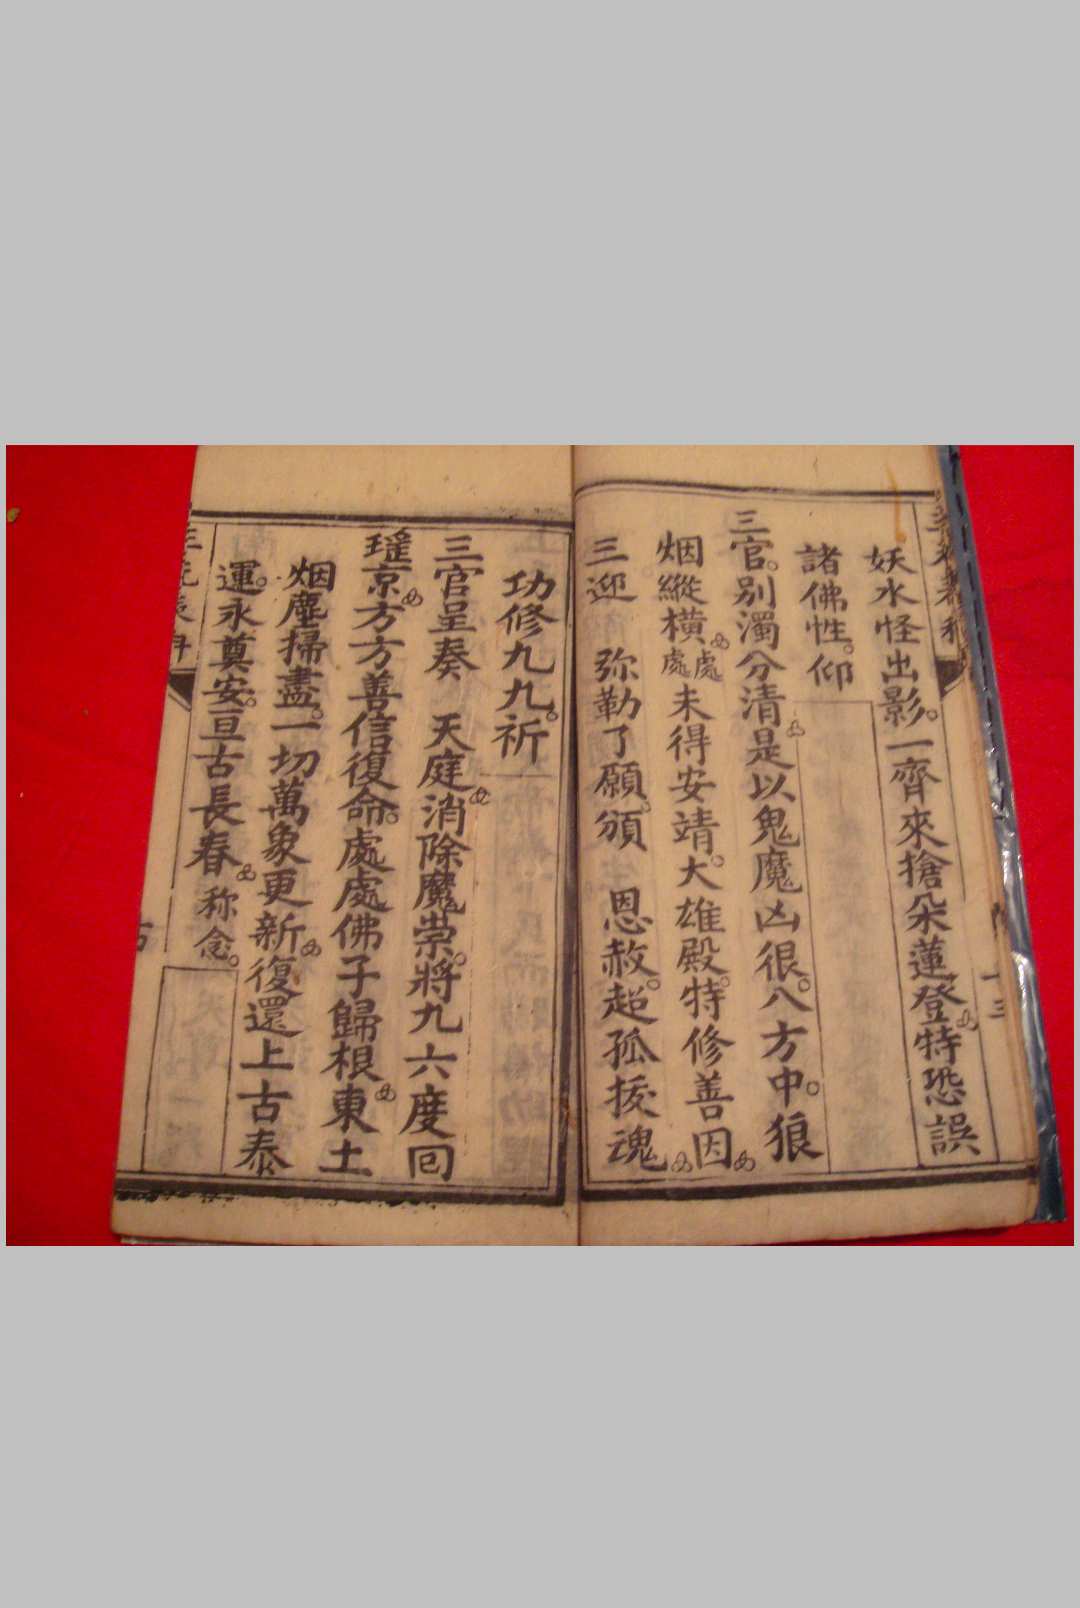 妖水怪出影。一齊來搶朵蓮登特恐誤
諸佛性。仰
三官。別濁分清是以鬼魔凶很。八方中。狼
烟縱橫處處未得安靖。大雄殿。特修善因
三迎 弥勒了願。頒 恩赦。超孤拔魂
功修九九。祈
三官呈奏 天庭消除魔祟。將九六度回
瑤京方方善信復命。處處佛子歸根東土
烟塵掃盡。一切萬象更新復還上古泰
運。永奠安。亘古長春。称念。